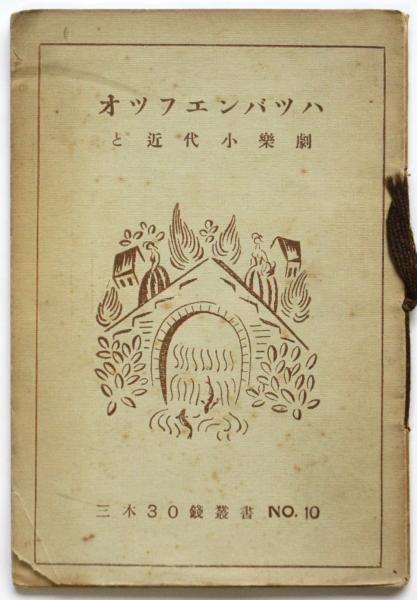 オツフエンバツハ
と近代小樂劇
三木30錢叢書 NO.10